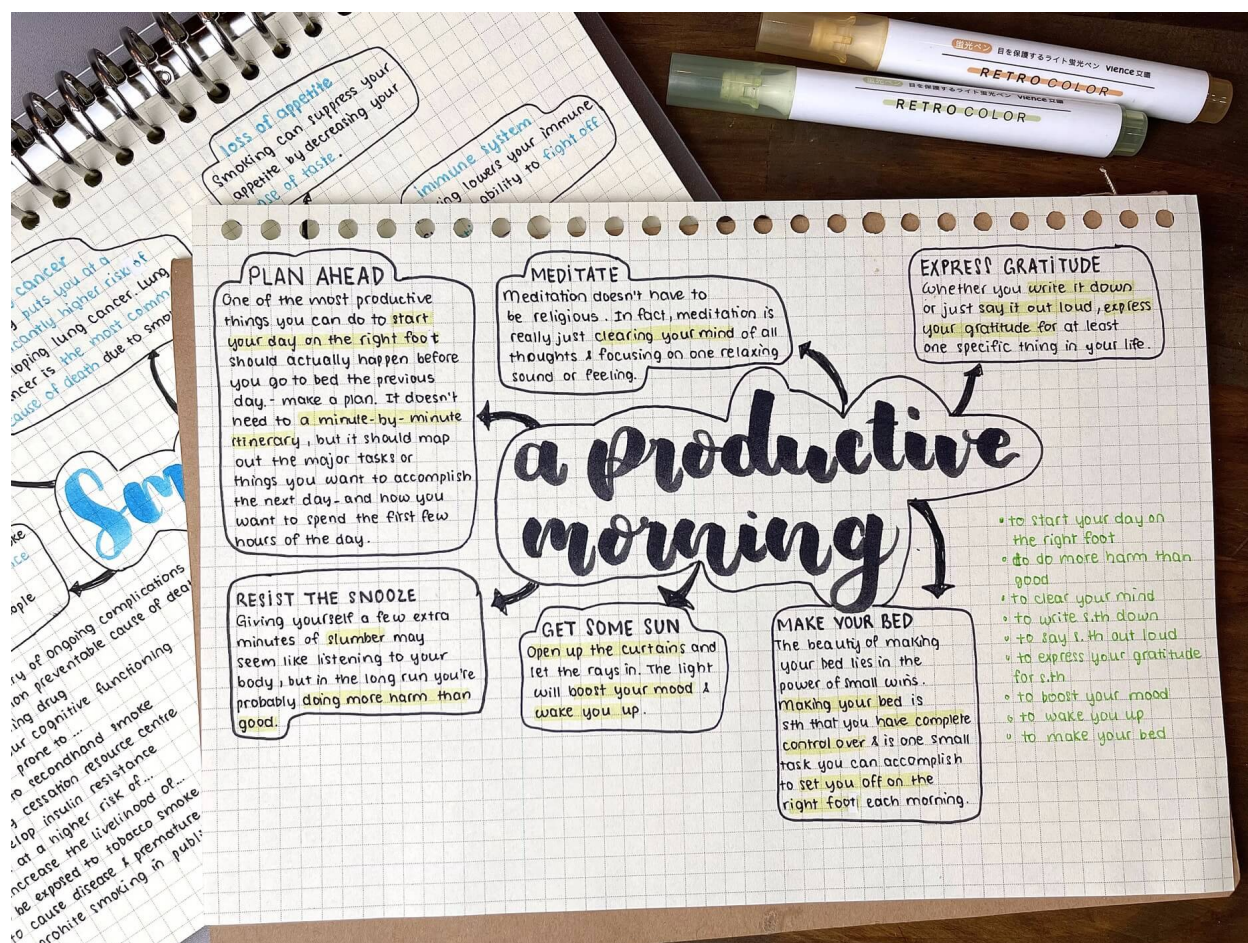 loss of appetite
Smoking can suppress your
appetite by decreasing your
sense of taste.
immune system
lowers your immune
ability to fight off
cancer
puts you at a
higher risk of
lung cancer. Lung
is the most
cause of death due to
of ongoing complications
preventable cause of
drug
cognitive functioning
prone to ...
secondhand smoke
cessation resource centre
insulin resistance
at a higher risk of...
increase the livelihood of...
be exposed to tobacco smoke
to cause disease & premature
smoking in
蛍光ペン 目を保護するライト蛍光ペン vience文画
RETRO COLOR
目を保護するライト蛍光ペン vience文画
RETRO COLOR
PLAN AHEAD
One of the most productive
things you can do to start
your day on the right foot
should actually happen before
you go to bed the previous
day.- make a plan. It doesn't
need to a minute-by-minute
itinerary, but it should map
out the major tasks or
things you want to accomplish
the next day- and how you
want to spend the first few
hours of the day.
MEDITATE
Meditation doesn't have to
be religious. In fact, meditation is
really just clearing your mind of all
thoughts & focusing on one relaxing
sound or feeling.
EXPRESS GRATITUDE
Whether you write it down
or just say it out loud, express
your gratitude for at least
one specific thing in your life.
a productive
morning
RESIST THE SNOOZE
Giving yourself a few extra
minutes of slumber may
seem like listening to your
body, but in the long run you're
probably doing more harm than
good.
GET SOME SUN
Open up the curtains and
let the rays in. The light
will boost your mood &
wake you up.
MAKE YOUR BED
The beauty of making
your bed lies in the
power of small wins.
Making your bed is
sth that you have complete
control over & is one small
task you can accomplish
to set you off on the
right foot each morning.
• to start your day on
the right foot
• to do more harm than
good
• to clear your mind
• to write s.th down
• to say s.th out loud
• to express your gratitude
for s.th
• to boost your mood
• to wake you up
• to make your bed